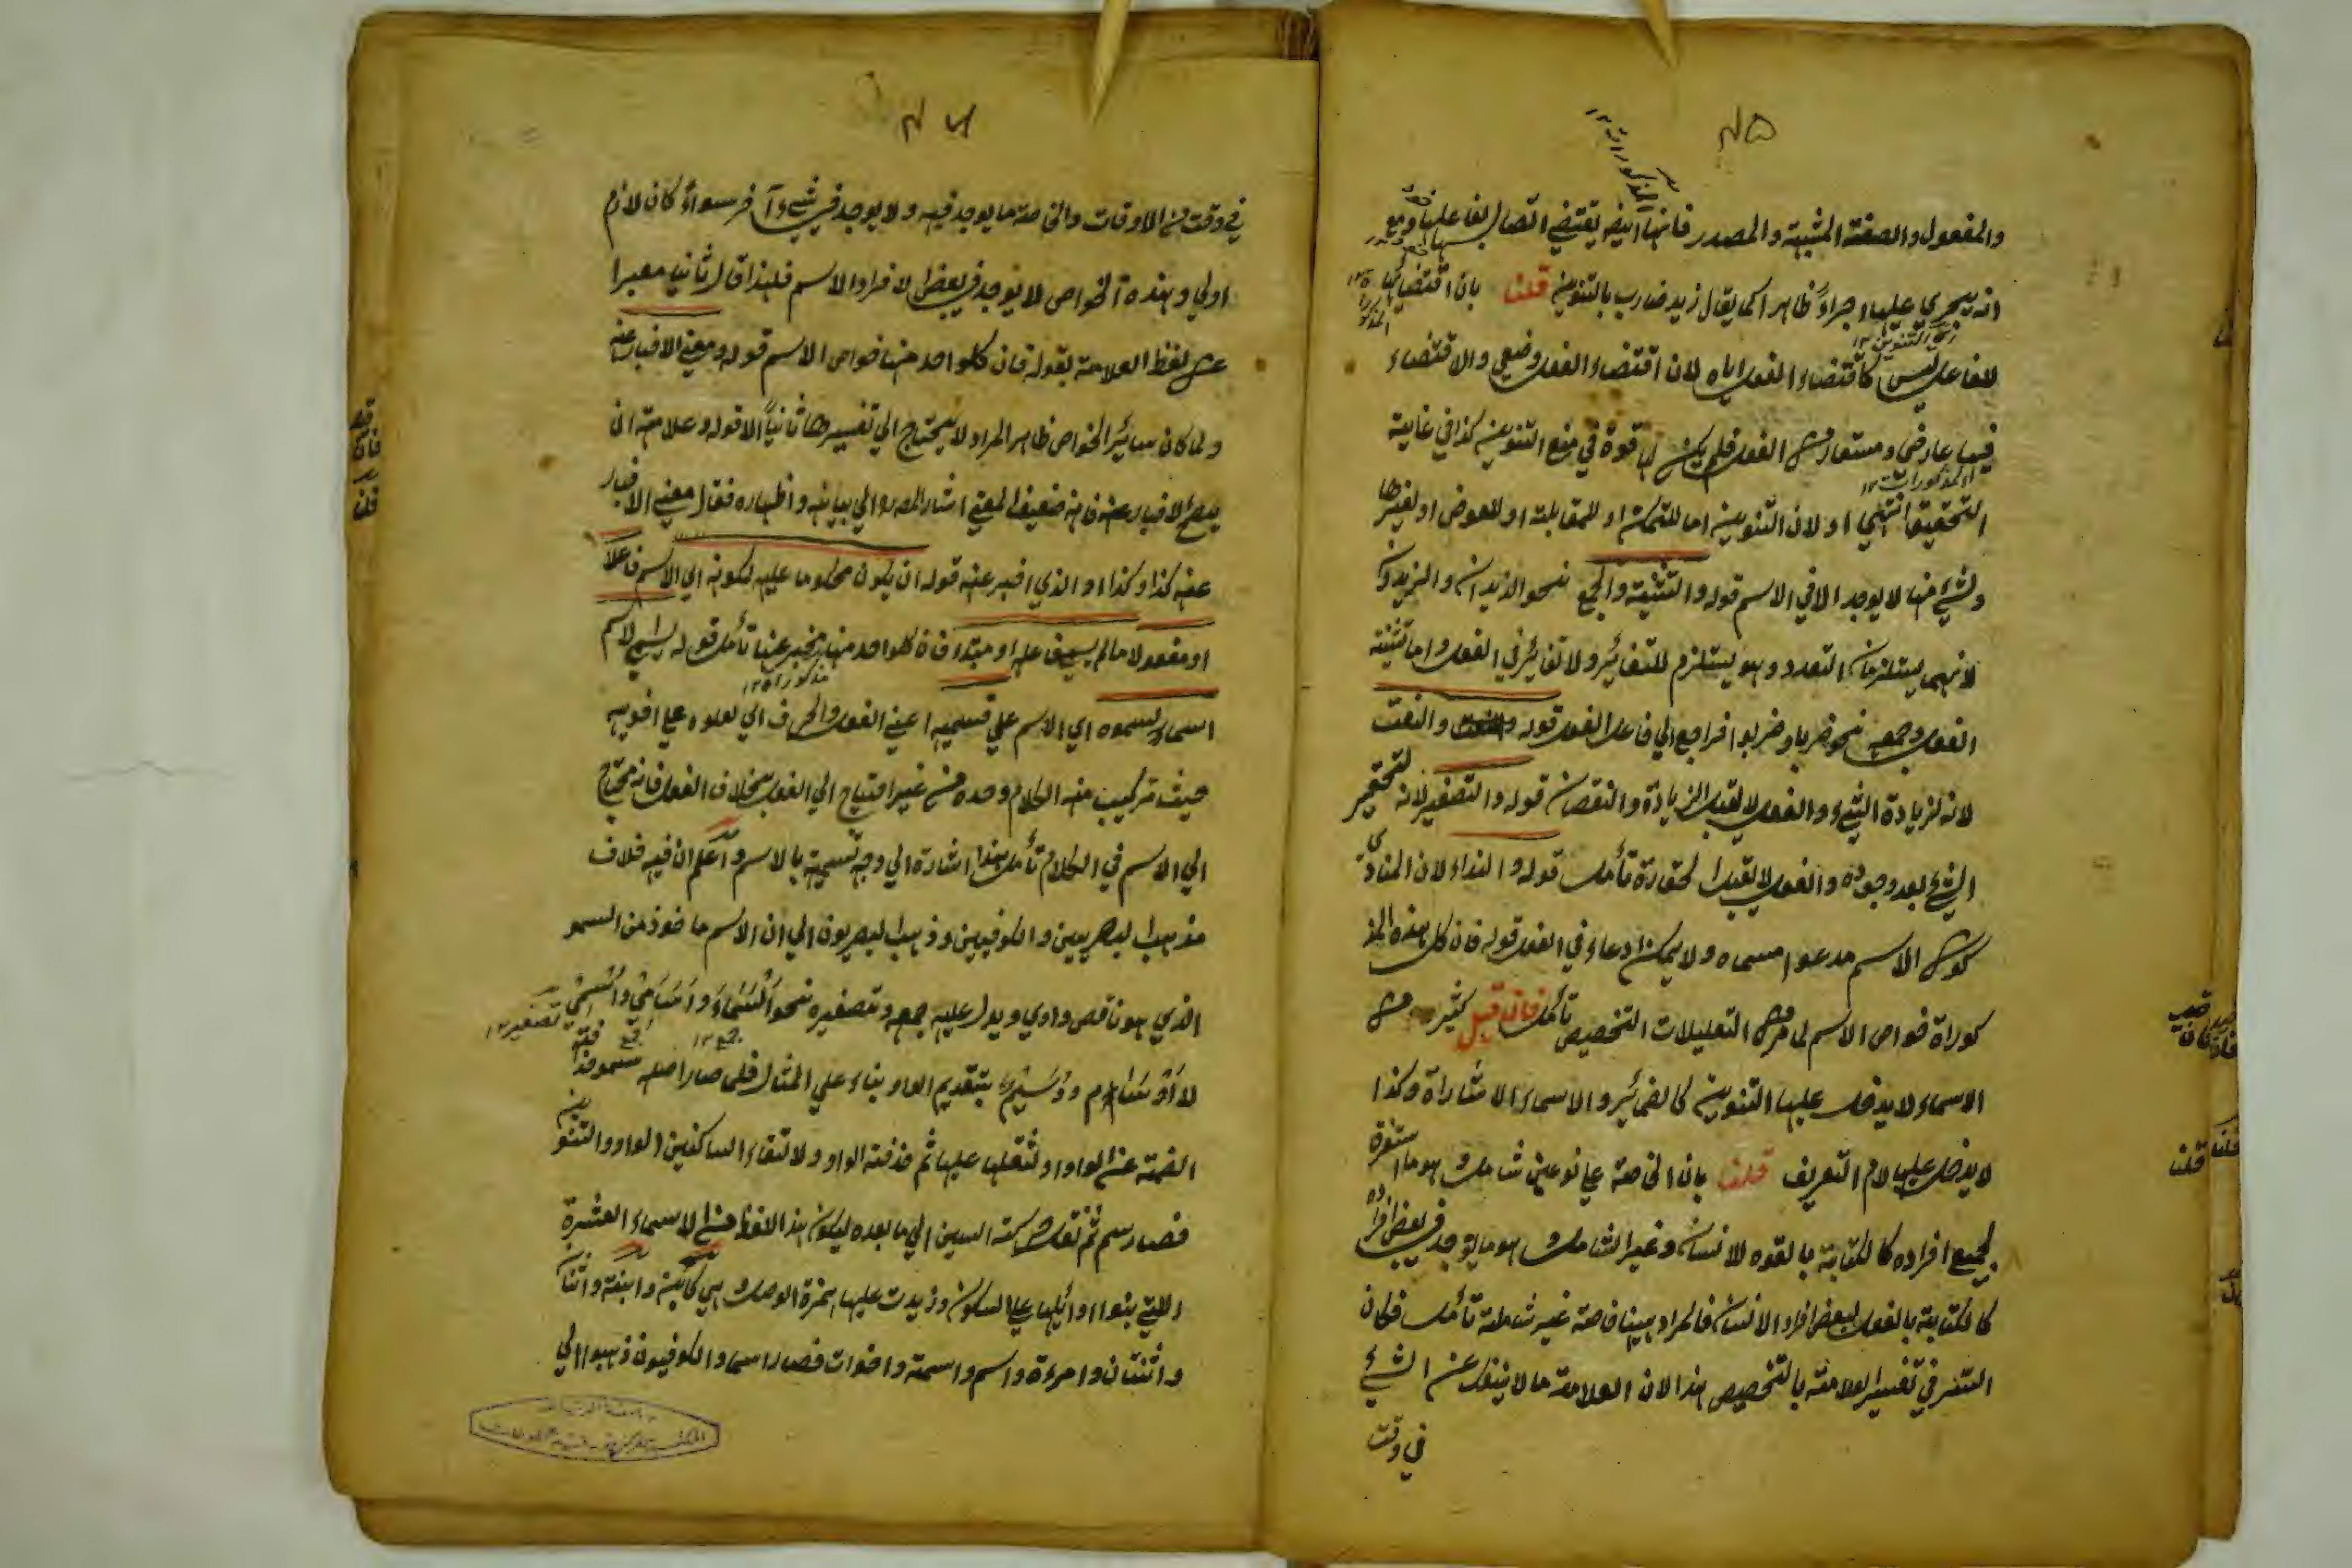 ۴۵
والمفعول والصفة المشبهة والمصدر فانها ايضا يقتضي اتصال بفاعلها ومع
انه يجري عليها اجراء ظاهرا كما يقال زيد ضارب بالتنوين قلنا بان اقتضائها
للفاعل ليس كاقتضاء الفعل اياه لان اقتضاء الفعل وضعي والاقتضاء
فيها عارضي ومستعار من الفعل فلم يكن لها قوة في منع التنوين كذا في غاية
التحقيق انتهي او لان التنوين اما للتمكن او للمقابلة او للعوض او لغيرها
وشيء منها لا يوجد الا في الاسم قوله والتثنية والجمع نحو الزيدان والزيدون
لانهما يستلزمان التعدد وهو يستلزم للتغائير ولا تغائير في الفعل واما تثنية
الفعل وجمعه نحو ضربا وضربوا فراجع الي فاعل الفعل قوله والنعت
لانه لزيادة الشيء والفعل لا يقبل الزيادة والنقصان قوله والتصغير لانه لتحقير
الشيء بعد وجوده والفعل لا يقبل الحقارة تأمل قوله والنداء لان المنادي
كون الاسم مدعوا مسماه ولا يمكن ادعاء في الفعل قوله فان كل هذه المذ
كوراة خواص الاسم لما مر من التعليلات التخصيص تأمل فان قيل كثير من
الاسماء لا يدخل عليها التنوين كالضمائير والاسماء الاشاراة وكذا
لا يدخل عليها لام التعريف قلنا بان الخاصة علي نوعين شامل وهو ما
لجميع افراده كالكتابة بالقوه للانسان وغير الشامل وهو ما يوجد في بعض افراده
كالكتابة بالفعل لبعض افراد الانسان فالمراد هيهنا خاصة غير شاملة تأمل فكان
السر في تفسير العلامة بالتخصيص هذا لان العلامة ما لا ينفك عن الشيء
في وقت
۴۶
في وقت من الاوقات والخاصة ما يوجد فيه ولا يوجد في شيء آخر سواء كان لازم
اولي وهذه الخواص لا يوجد في بعض الافراد الاسم فلهذا قال ثانيا معبرا
عن لفظ العلامة بقوله فان كلواحد منها خواص الاسم قوله ومعني الاخبار عنه
ولما كان سائير الخواص ظاهر المراد لا يحتاج الي تفسيرها ثانيا الا قوله وعلامته ان
يصح الاخبار عنه فانه ضعيف المعني اشار المصر والي بيانه واظهاره فقال معني الاخبار
عنه كذا وكذا او الذي اخبر عنه قوله ان يكون محكوما عليه لكونه اي الاسم فاعلا
او مفعولا ما لم يسم فاعله او مبتدا فان كلواحد منها مخبر عنها تأمل قوله يسمي الاسم
اسما لسموه اي الاسم علي قسميه اعني الفعل والحرف اي لعلوه علي اخويه
حيث تركيب منه الكلام وحده من غير احتياج الي الفعل بخلاف الفعل فانه محتاج
الي الاسم في الكلام تأمل هذا اشارة الي وجه تسميته بالاسم واعلم ان فيه خلاف
مذهب البصريين والكوفيين وذهب البصريون الي ان الاسم ماخوذ من السمو
الذي هو ناقص واوي ويدل عليه جمعه وتصغيره نحو اسماء واسامي وسمي
لا اوسام ووسيم بتقديم الواو بناء علي المثال فلما صار اصله سمو
الضمة عن الواو لثقلها عليها ثم حذفته الواو ولالتقاء الساكنين الواو والتنوين
فصار سم ثم نقل حركة السين الي ما بعده ليكون هذا اللفظ من الاسماء العشرة
اللتي بنوا اوائلها علي السكون وزيدت عليها همزة الوصل وهي كابن وابنة واثنان
واثنتان وامرءة واسم واسمة واخوات فصار اسما والكوفيون ذهبوا الي